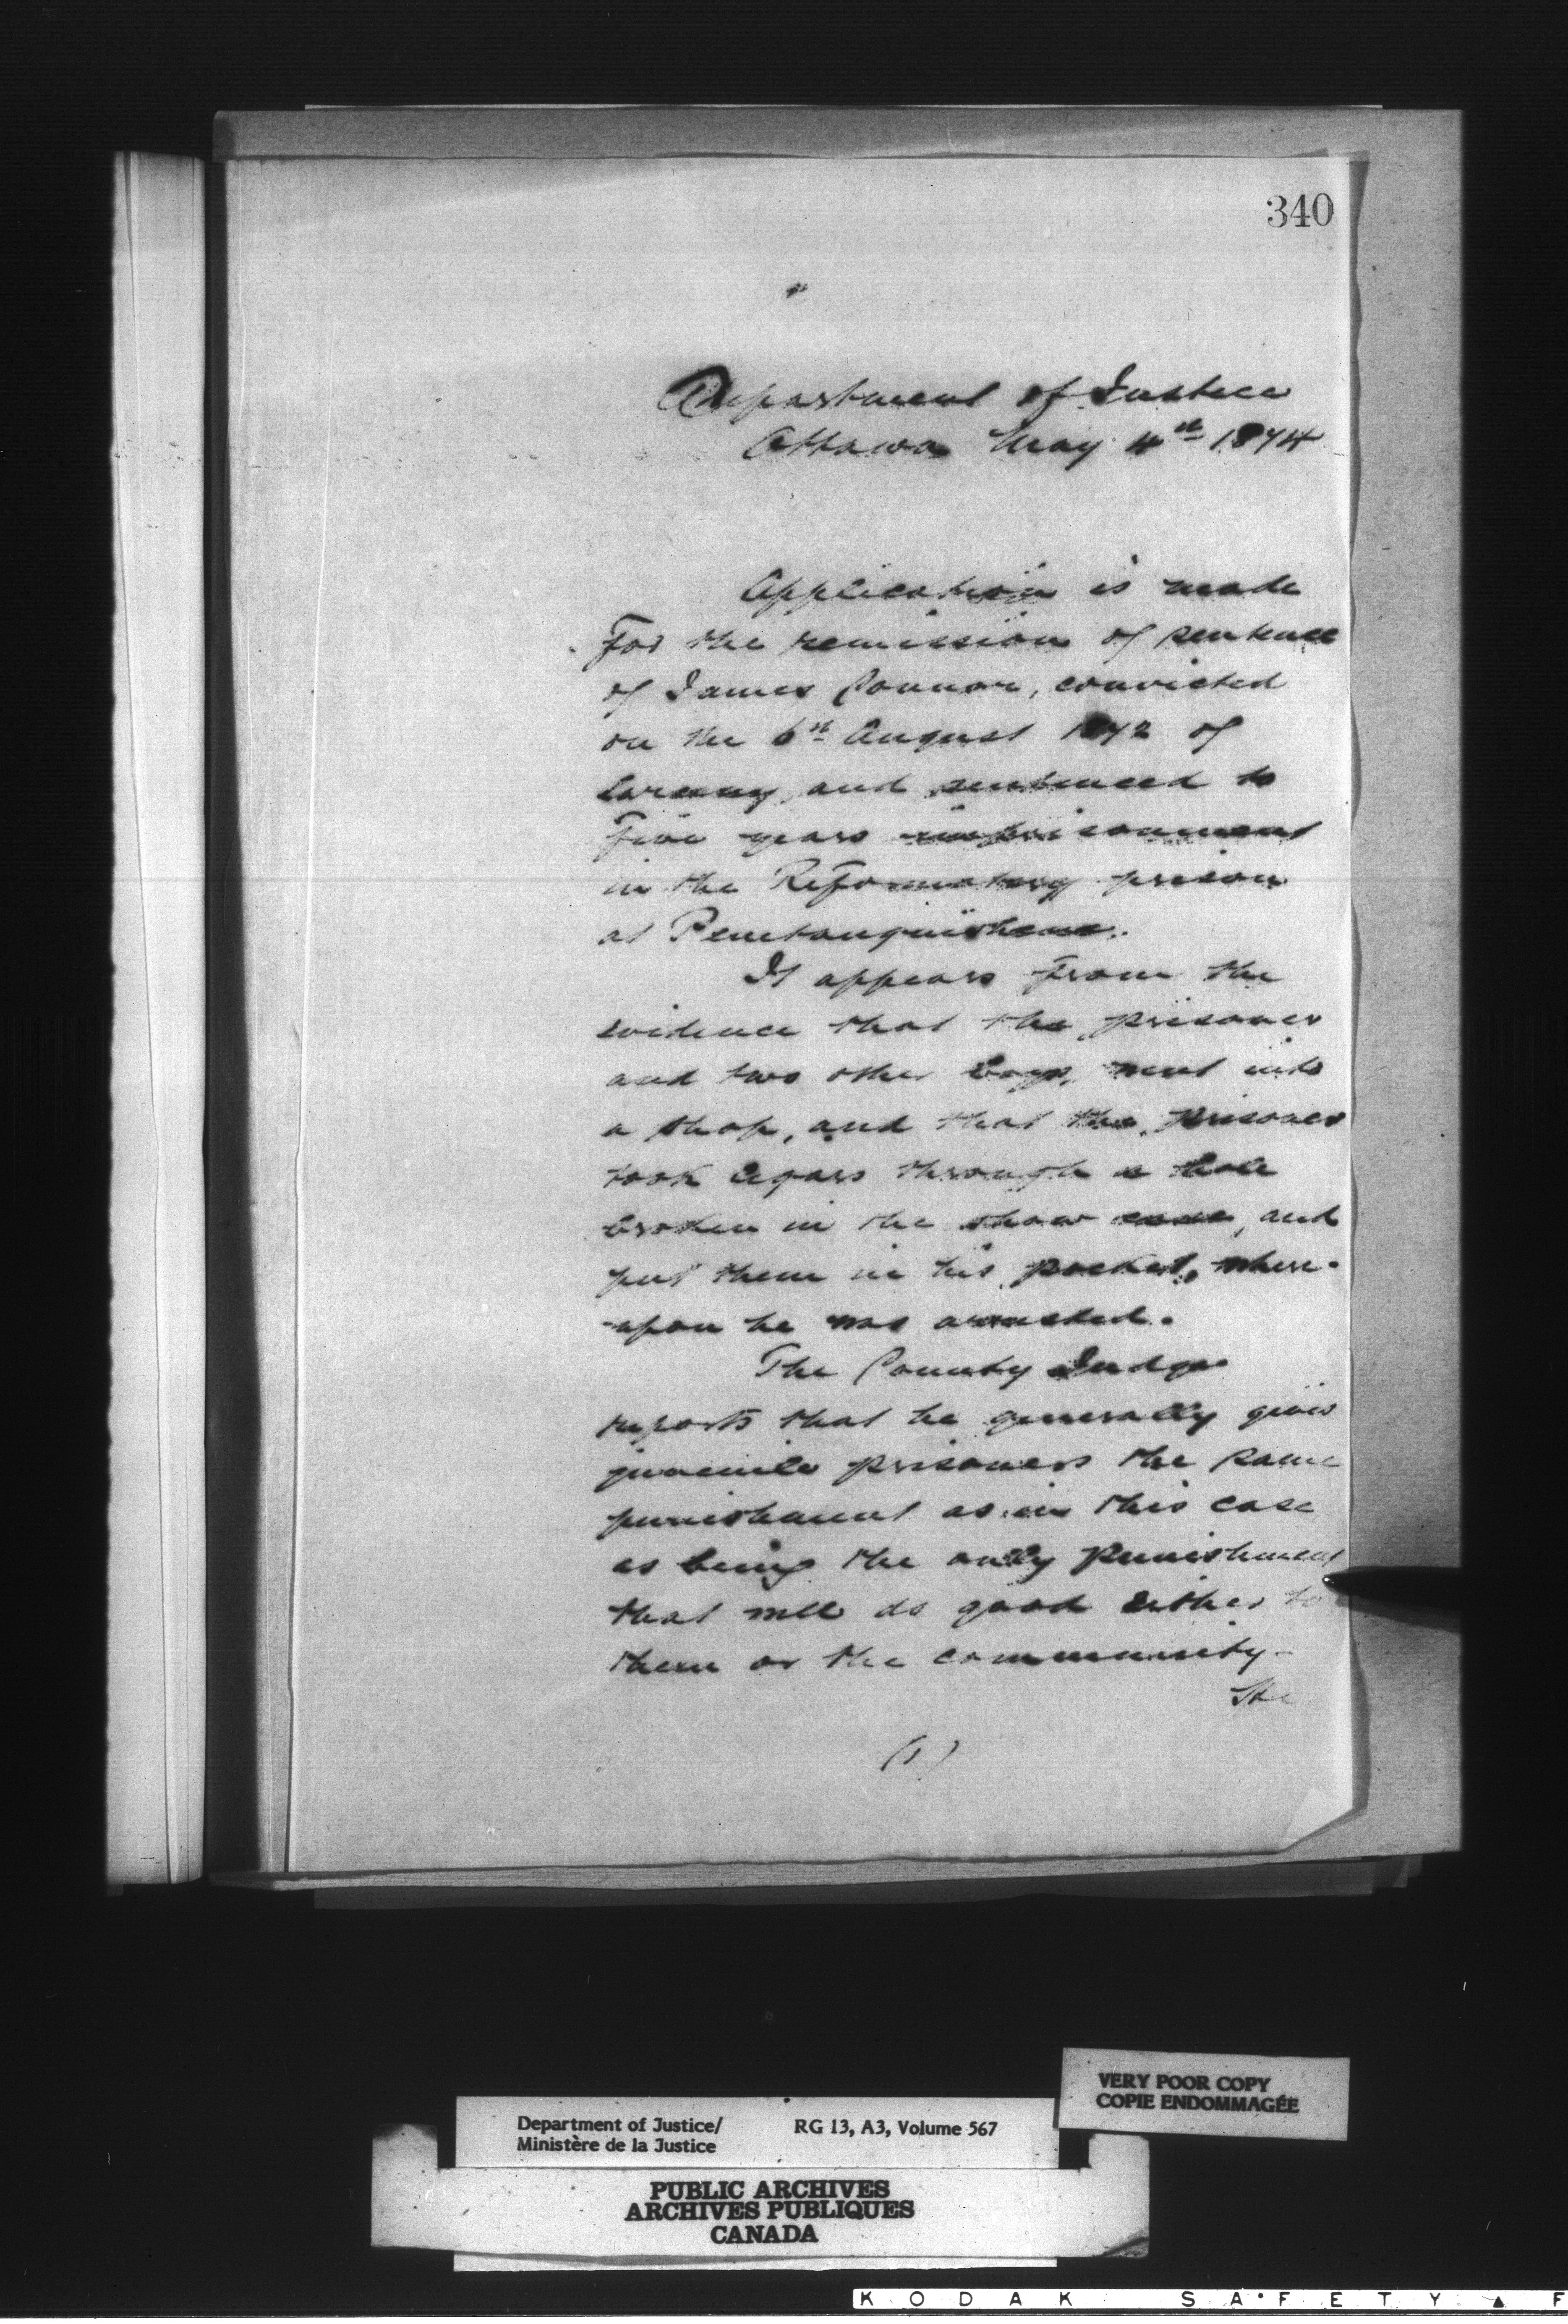 340
Department of Justice
Ottawa May 4th 1874
Application is made
for the remission of sentence
of James Connor, convicted
on the 6th August 1872 of
larceny, and sentenced to
five years imprisonment
in the Reformatory prison
at Penetanguishene.
It appears from the
evidence that the prisoner
and two other boys, went into
a shop, and that the prisoner
took cigars through a hole
broken in the show case, and
put them in his pocket, where-
upon he was arrested.
The County Judge
reports that he generally gives
juvenile prisoners the same
punishment as in this case
as being the only punishment
that will do good either to
them or the community.
He
(1)
VERY POOR COPY
COPIE ENDOMMAGÉE
Department of Justice/ RG 13, A3, Volume 567
Ministère de la Justice
PUBLIC ARCHIVES
ARCHIVES PUBLIQUES
CANADA
KODAK SAFETY F